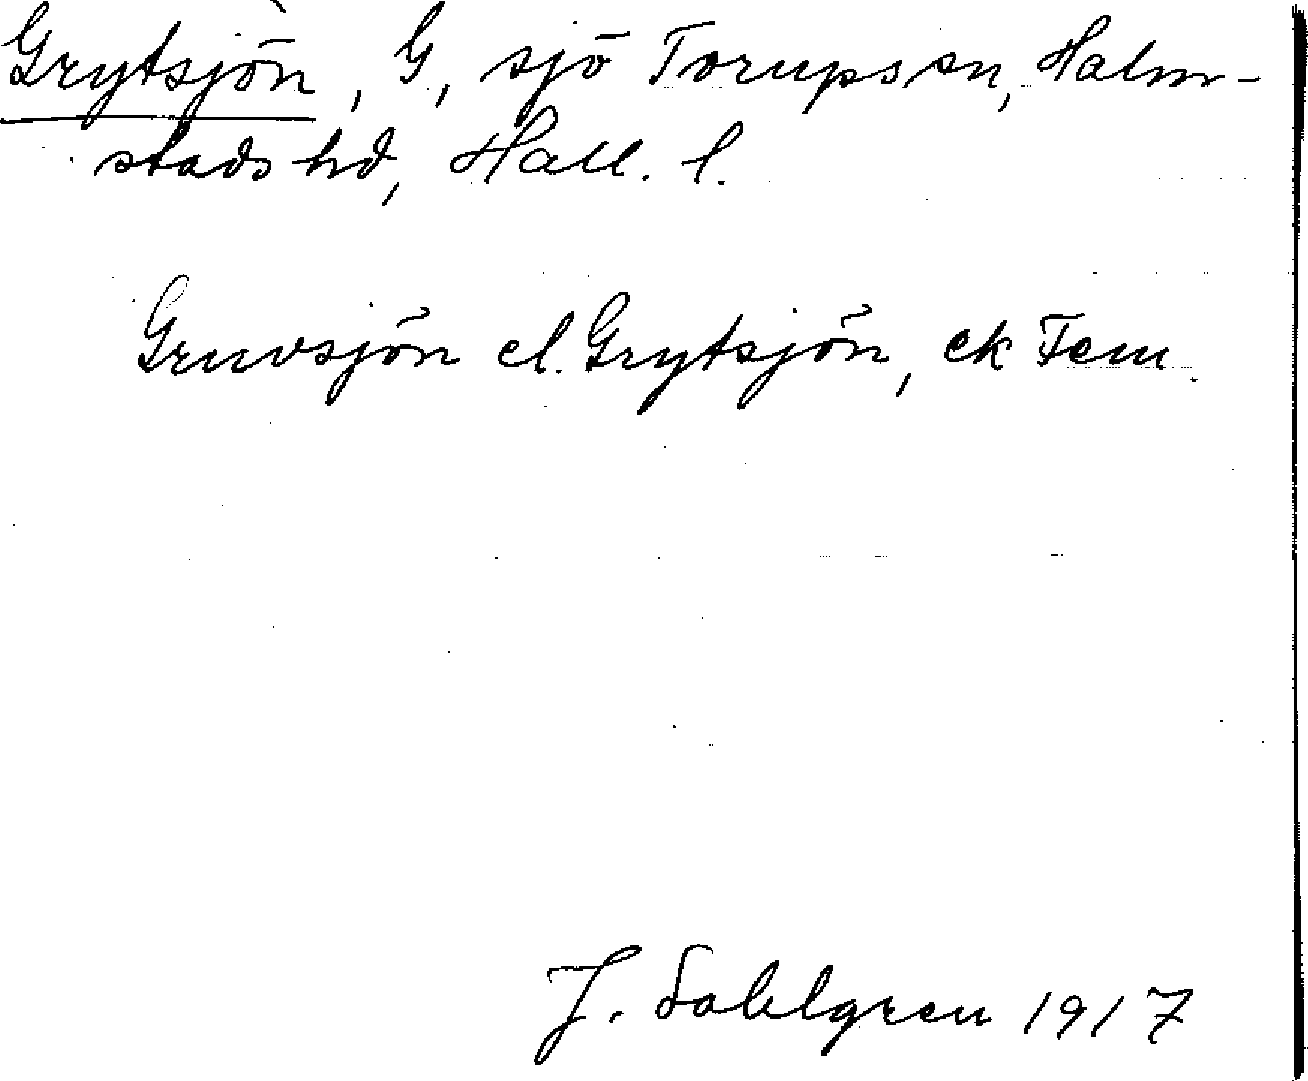 Grytsjön, G, sjö Torups sn, Halm-
stads hd, Hall. l.
Gruvsjön el. Grytsjön, ek Tem
J. Sahlgren 1917